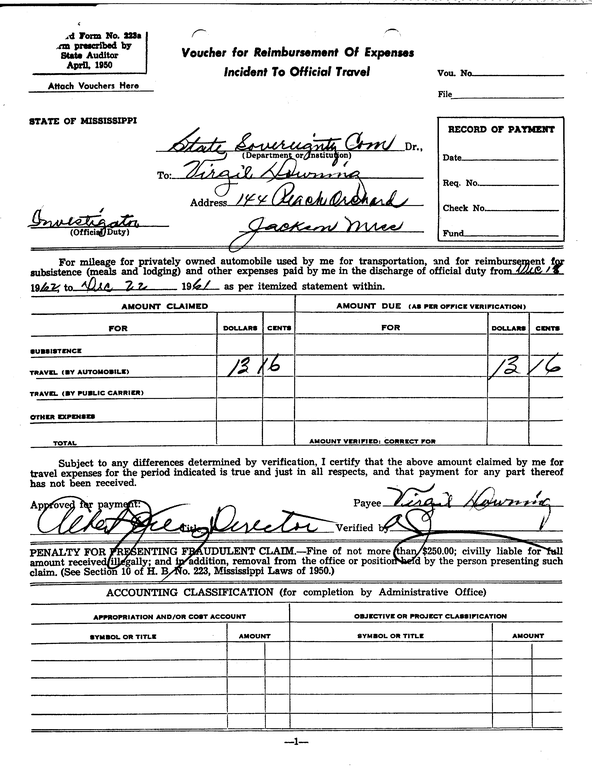 d Form No. 223a
rm prescribed by
State Auditor
April, 1950
Attach Vouchers Here
Voucher for Reimbursement Of Expenses
Incident To Official Travel
Vou. No.
File
STATE OF MISSISSIPPI
State Sovereignty Com Dr.,
(Department or Institution)
To: Virgil Downing
Address 144 Peach Orchard
Jackson Miss
Investigator
(Official Duty)
RECORD OF PAYMENT
Date
Req. No.
Check No.
Fund
For mileage for privately owned automobile used by me for transportation, and for reimbursement for
subsistence (meals and lodging) and other expenses paid by me in the discharge of official duty from Dec 18
1962, to Dec 22 1961 as per itemized statement within.
AMOUNT CLAIMED AMOUNT DUE (AS PER OFFICE VERIFICATION)
FOR DOLLARS CENTS FOR DOLLARS CENTS
SUBSISTENCE
TRAVEL (BY AUTOMOBILE) 13 16 13 16
TRAVEL (BY PUBLIC CARRIER)
OTHER EXPENSES
TOTAL AMOUNT VERIFIED: CORRECT FOR
Subject to any differences determined by verification, I certify that the above amount claimed by me for
travel expenses for the period indicated is true and just in all respects, and that payment for any part thereof
has not been received.
Approved for payment: Payee Virgil Downing
Albert Director Verified by
PENALTY FOR PRESENTING FRAUDULENT CLAIM.—Fine of not more than $250.00; civilly liable for full
amount received illegally; and in addition, removal from the office or position held by the person presenting such
claim. (See Section 10 of H. B. No. 223, Mississippi Laws of 1950.)
ACCOUNTING CLASSIFICATION (for completion by Administrative Office)
APPROPRIATION AND/OR COST ACCOUNT OBJECTIVE OR PROJECT CLASSIFICATION
SYMBOL OR TITLE AMOUNT SYMBOL OR TITLE AMOUNT
—1—